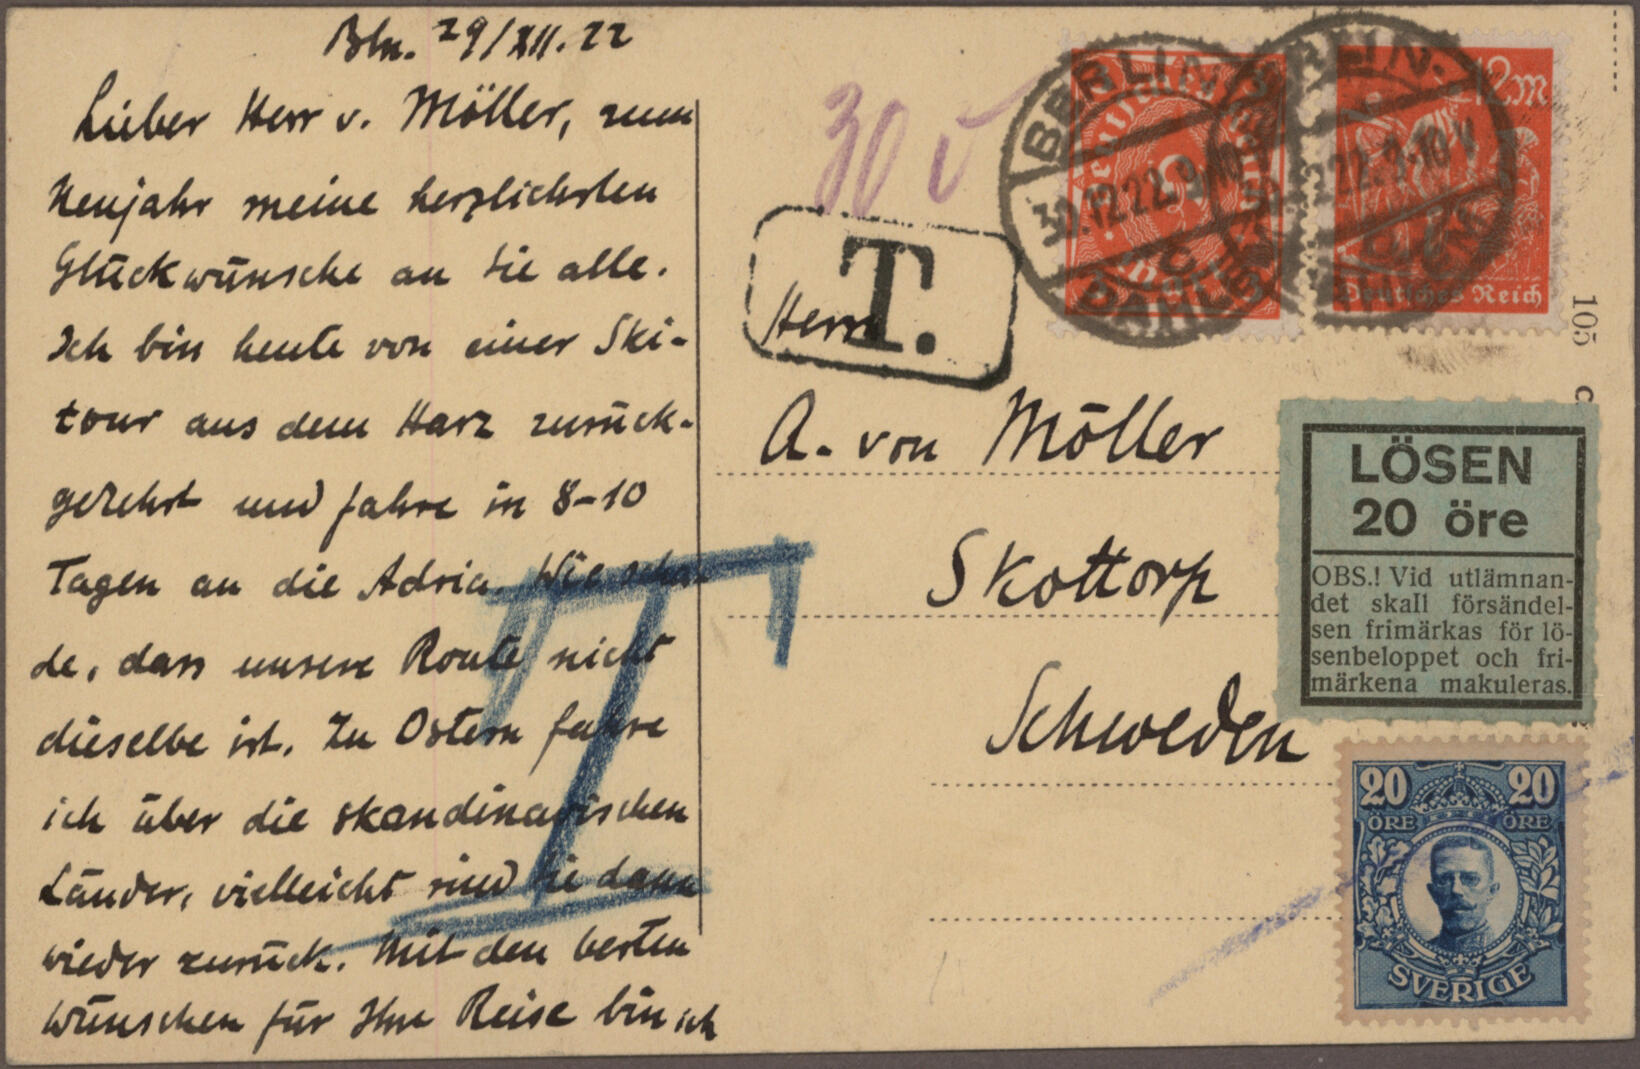 Bln. 29/XII. 22
Lieber Herr v. Möller, zum
Neujahr meine herzlichsten
Glückwünsche an Sie alle.
Ich bin heute von einer Ski-
tour aus dem Harz zurück-
gekehrt und fahre in 8-10
Tagen an die Adria. Wie scha-
de, dass unsere Route nicht
dieselbe ist. Zu Ostern fahre
ich über die skandinavischen
Länder, vielleicht sind Sie dann
wieder zurück. Mit den besten
Wünschen für Ihre Reise bin ich
30
T.
T
BERLIN
30.12.22.9-10
DAHLEM
Deutsche
5
Mark
BERLIN.
22.9-10
DAHLEM
12M
Deutsches Reich
105
C
Herrn
A. von Möller
Skottorp
Schweden
LÖSEN
20 öre
OBS.! Vid utlämnan-
det skall försändel-
sen frimärkas för lö-
senbeloppet och fri-
märkena makuleras.
20 20
ÖRE ÖRE
SVERIGE